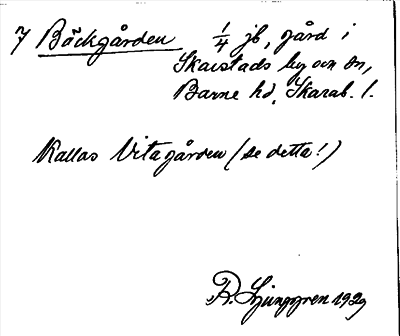 7 Bäckgården 1/4 jb, gård i
Skarstads by och sn,
Barne hd, Skarab. l.
Kallas Vitagården (se detta!)
R. Ljunggren 1929